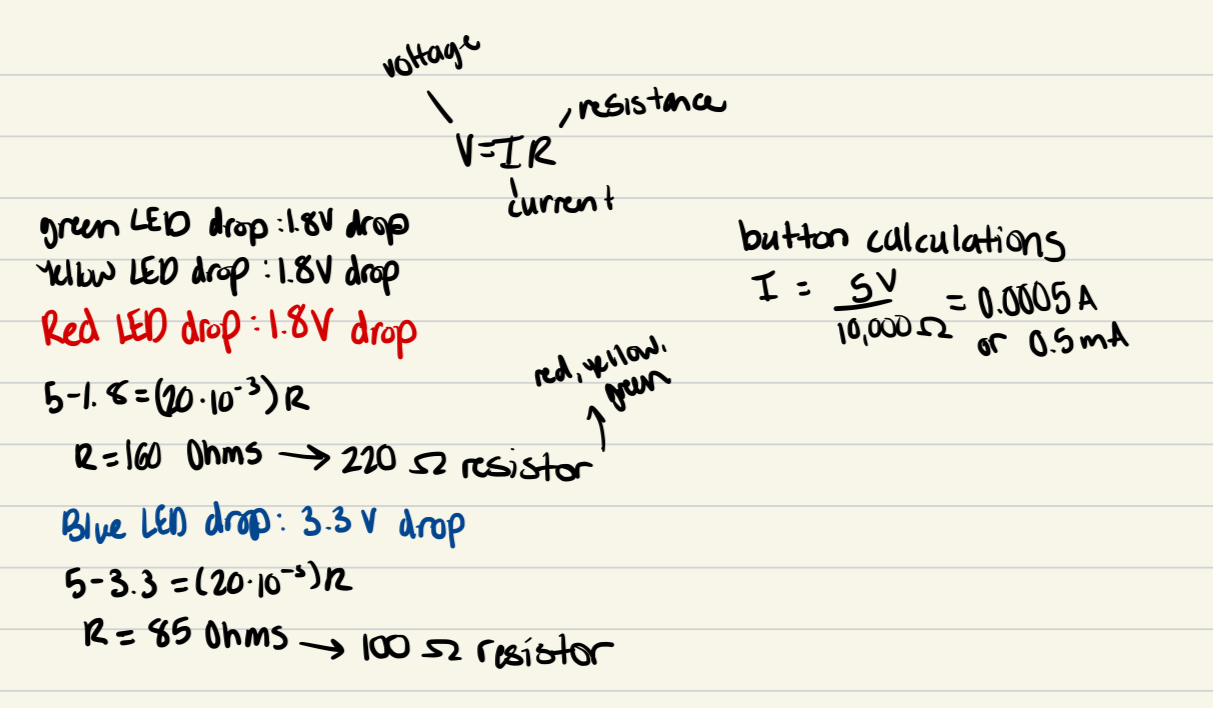 voltage
resistance
V=IR
current
green LED drop: 1.8V drop
yellow LED drop: 1.8V drop
Red LED drop: 1.8V drop
5-1.8=(20·10⁻³)R
R=160 Ohms → 220 Ω resistor
red, yellow,
green
Blue LED drop: 3.3 V drop
5-3.3=(20·10⁻³)R
R = 85 Ohms → 100 Ω resistor
button calculations
I = 5V / 10,000 Ω = 0.0005A
or 0.5mA